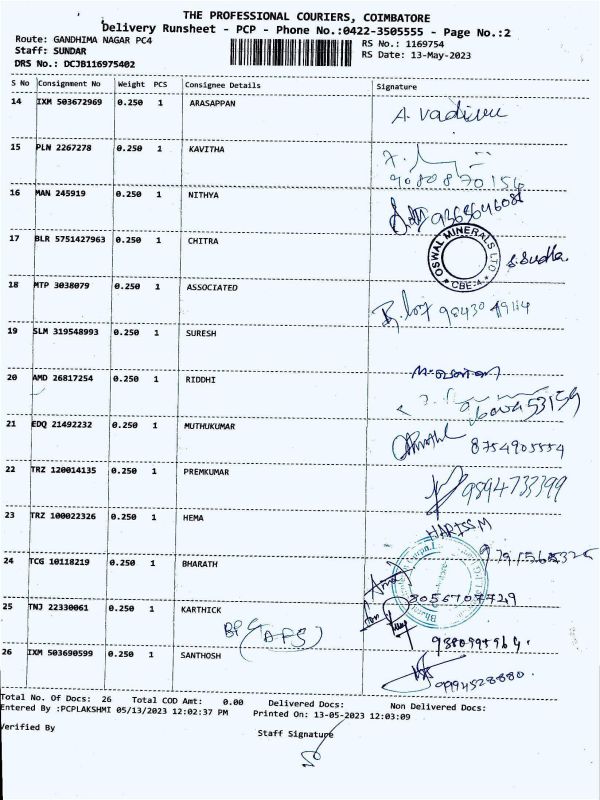 THE PROFESSIONAL COURIERS, COIMBATORE
Delivery Runsheet - PCP - Phone No.:0422-3505555 - Page No.:2
Route: GANDHIMA NAGAR PC4
RS No.: 1169754
Staff: SUNDAR
RS Date: 13-May-2023
DRS No.: DCJB116975402
S No Consignment No Weight PCS Consignee Details Signature
14 IXM 503672969 0.250 1 ARASAPPAN A. Vadivu
15 PLN 2267278 0.250 1 KAVITHA
9080870154
16 MAN 245919 0.250 1 NITHYA
17 BLR 5751427963 0.250 1 CHITRA
OSWAL MINERALS LTD
CBE-4.
S. Sudha.
18 MTP 3038079 0.250 1 ASSOCIATED
19 SLM 319548993 0.250 1 SURESH
20 AMD 26817254 0.250 1 RIDDHI
21 EDQ 21492232 0.250 1 MUTHUKUMAR
8754905554
22 TRZ 120014135 0.250 1 PREMKUMAR
9894733399
23 TRZ 100022326 0.250 1 HEMA
HARISSM
24 TCG 10118219 0.250 1 BHARATH
25 TNJ 22330061 0.250 1 KARTHICK
26 IXM 503690599 0.250 1 SANTHOSH
9994528880.
Total No. Of Docs: 26 Total COD Amt: 0.00 Delivered Docs: Non Delivered Docs:
Entered By :PCPLAKSHMI 05/13/2023 12:02:37 PM Printed On: 13-05-2023 12:03:09
Verified By
Staff Signature